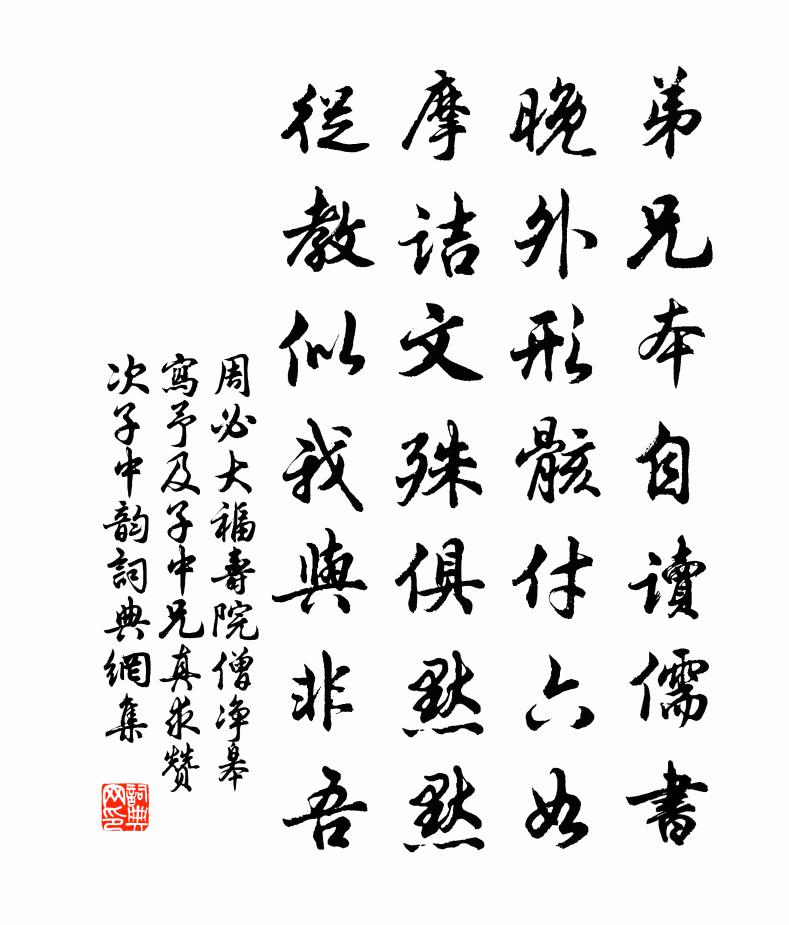 弟兄本自讀儒書
晚外形骸付六如
摩詰文殊俱默默
從教似我與非吾
周必大福壽院僧净皋
寫予及子中兄真求贊
次子中韵詞典網集
詞典网印